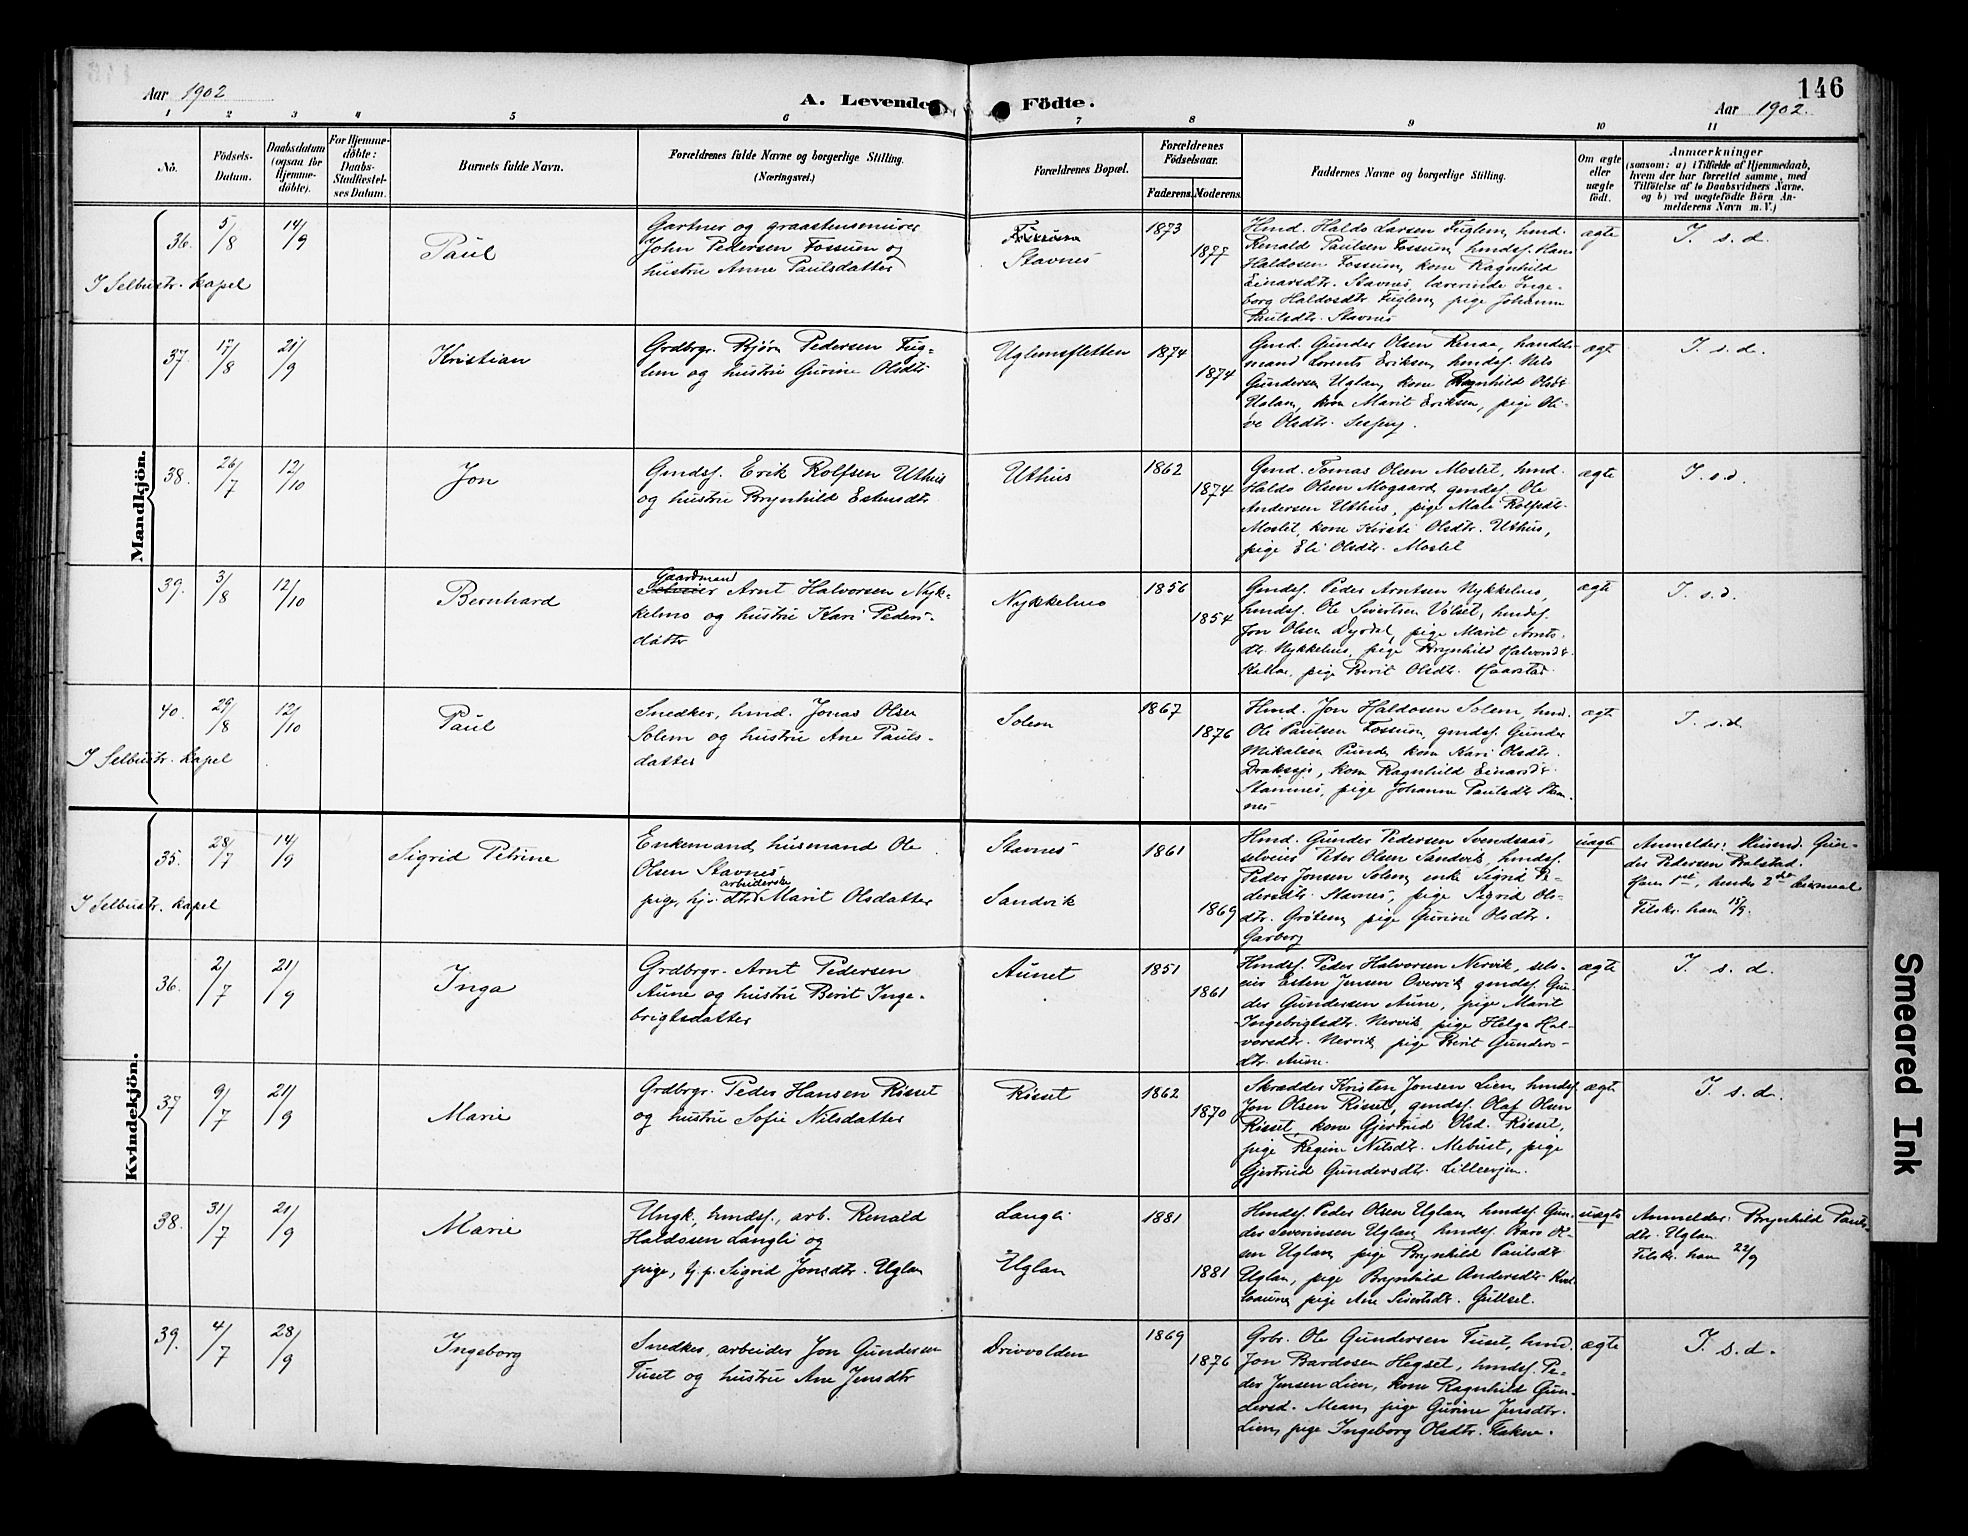 146
Aar 1902
A. Levende Födte.
Aar 1902.
1 2 3 4 5 6 7 8 9 10 11
No.
Födsels-Datum.
Daabsdatum (ogsaa for Hjemme-döbte).
For Hjemme-döbte: Daabs-Stadfæstelses Datum.
Barnets fulde Navn.
Forældrenes fulde Navne og borgerlige Stilling.
(Næringsvei.)
Forældrenes Bopæl.
Forældrenes Födselsaar.
Faderens. Moderens.
Faddernes Navne og borgerlige Stilling.
Om ægte eller uægte födt.
Anmærkninger
(saasom: a) i Tilfælde af Hjemmedaab, hvem der har forrettet samme, med Tilföielse af to Daabsvidners Navne, og b) ved uægtefödte Börn Anmelderens Navn m. V.)
Mandkjön.
36. 5/8 14/9
I Selbustr. kapel
Paul
Gartner og graastensmurer
John Pedersen Fossum og
hustru Anne Paulsdatter
Stavnes
1873
1877
Hmd. Haldo Larsen Fuglem, hmd.
Renald Paulsen Fossum, hmdsf. Hans
Haldosen Fossum, kone Ragnhild
Einarsdtr. Stavnes, lærerinde Inge-
borg Haldosdtr. Fuglem, pige Johanna
Paulsdtr. Stavnes
ægte
I. s. d.
37. 17/8 21/9
Kristian
Grdbrgr. Bjørn Pedersen Fug-
lem og hustru Gurine Olsdtr
Uglemsfletten
1874
1874
Gmd. Gunder Olsen Renaa, handels-
mand Lorents Eriksen, hmdsf. Nils
Gundersen Uglan, kone Ragnhild Olsdtr
Uglan, kone Marit Eriksen, pige Oli-
ve Olsdtr.
ægt
I. s. d.
38. 26/7 12/10
Jon
Gmdsf. Erik Rolfsen Uthus
og hustru Brynhild Estensdtr
Uthus
1862
1874
Gmd. Tomas Olsen Moslet, hmd.
Haldo Olsen Mogaard, gmdsf. Ole
Andersen Uthus, pige Mali Rolfsdtr.
Moslet, kone Kirsti Olsdtr. Uthus,
pige Eli Olsdtr. Moslet
ægte
I. s. d.
39. 3/8 12/10
Bernhard
Gaardmand
Selveier Arnt Halvorsen Nyk-
kelmo og hustru Kari Peders-
datter
Nykkelmo
1856
1854
Gmdsf. Peder Arntsen Nykkelmo,
hmdsf. Ole Sivertsen Volset, hmdsf.
Jon Olsen Dyrdal, pige Marit Arnts-
dtr. Nykkelmo, pige Brynhild Halvorsdtr.
Kallar, pige Berit Olsdtr. Haarstad
ægte
I. s. d.
40. 29/8 12/10
I Selbustr. kapel
Paul
Snedker, hmd. Jonas Olsen
Solem og hustru Ane Pauls-
datter
Solem
1867
1876
Hmd. Jon Haldosen Solem, hmd.
Ole Paulsen Fossum, gmdsf. Gunder
Mikalsen Punde, kone Kari Olsdtr.
Draksjø, kone Ragnhild Einarsdtr
Stamnes, pige Johanna Paulsdtr Stam-
nes
ægt
I. s. d.
Kvindekjön.
35. 28/7 14/9
I Selbustr. kapel
Sigrid Petrine
Enkemand, husmand Ole
Olsen Stavnes
arbeiderske
pige, hj. dtr Marit Olsdatter
Stavnes
Sandvik
1861
1869
Hmd. Gunder Pedersen Svendsaas,
selveier Peter Olsen Sandvik, hmdsf.
Peder Jonsen Solem, enke Sigrid Pe-
dersdtr. Stavnes, pige Sigrid Ols-
dtr. Grøtem, pige Gurine Olsdtr.
Garberg
uægte
Anmelder: Husmd. Gun-
der Pedersen Balstad.
Hans 1ste, hendes 2det leiermaal
Tilskr. ham 15/9.
36. 2/7 21/9
Inga
Grdbrgr. Arnt Pedersen
Aune og hustru Berit Inge-
brigtsdatter
Aunet
1851
1861
Hmdsf. Peder Halvorsen Nervik, selv-
eier Esten Jensen Overvik, gmdsf. Gun-
der Gundersen Aune, pige Marit
Ingebrigtsdtr. Nervik, pige Helga Hal-
vorsdtr. Nervik, pige Berit Gunders-
dtr. Aune.
ægte
I. s. d.
37 9/7 21/9
Marie
Grdbrgr. Peder Hansen Risset
og hustru Sofie Nilsdatter
Risset
1862
1870
Skrædder Kristen Jonsen Lien, hmdsf.
Jon Olsen Risset, gmdsf. Olaf Olsen
Risset, kone Gjertrud Olsd. Risset,
pige Regine Nilsdtr. Mebust, pige
Gjertrud Gundersdtr. Lilleevjen.
ægte
I. s. d.
38. 31/7 21/9
Marie
Ungk., hmdsf., arb. Renald
Haldosen Langli og
pige, tj. p. Sigrid Jonsdtr. Uglan
Langli
Uglan
1881
1881
Hmdsf. Peder Olsen Uglan, hmdsf. Gun-
der Severinsen Uglan, hmdsf. Baro Ol-
sen Uglan, pige Brynhild Paulsdtr
Uglan, pige Brynhild Andersdtr.
pige Ane Sivertsdtr. Gullset.
uægte
Anmelder: Brynhild Pauls-
dtr. Uglan
Tilskr. ham 22/9
39. 4/7 28/9
Ingeborg
Snedker, arbeider Jon Gundersen
Tuset og hustru Ane Jensdtr
Drivvolden
1869
1876
Grbr. Ole Gundersen Tuset, hmd.
Jon Bardosen Hegset, hmdsf. Pe-
der Jensen Lien, kone Ragnhild Gun-
dersd. Mean, pige Gurine Jensdtr.
Lien, pige Ingeborg Olsdtr.
ægte
I. s. d.
Smeared Ink